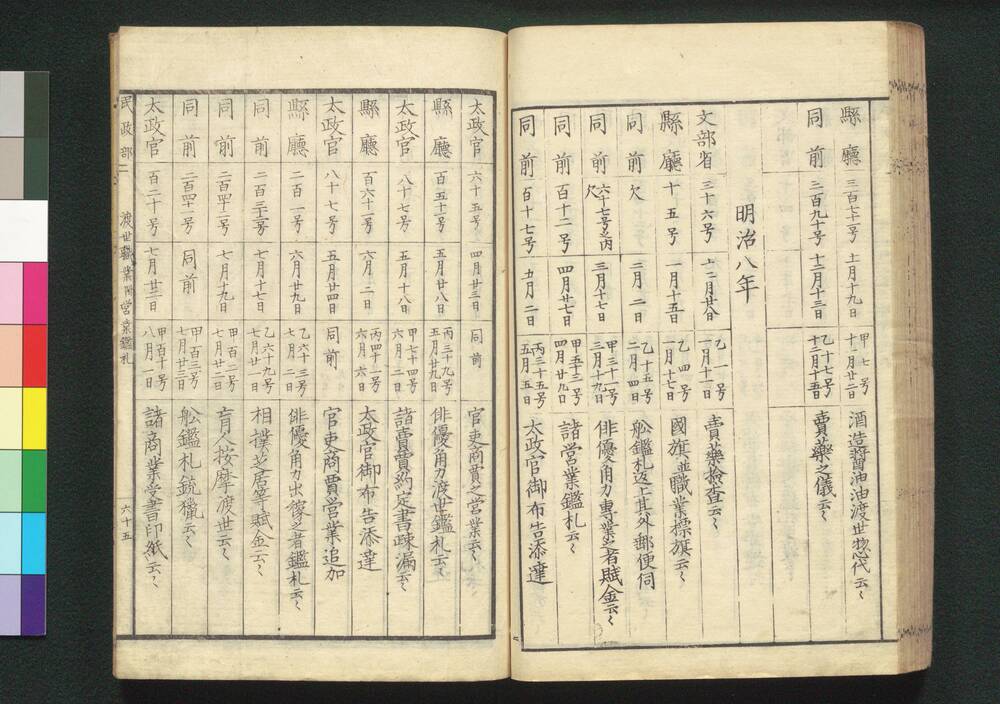 縣廳 三百七十二号 十一月十九日 甲七号 十月廿二日 酒造醤油油渡世惣代云〻
同前 三百九十号 十二月十三日 乙十七号 十二月十五日 賣藥之儀云〻
明治八年
文部省 三十六号 十二月廿八日 乙一号 一月十一日 賣藥檢査云〻
縣廳 十五号 一月十五日 乙四号 一月十七日 國旗並職業標旗云〻
同前 欠 二月二日 乙十五号 二月四日 舩鑑札返上其外郵便伺
同前 六十七号之丙 欠 三月十七日 甲三十一号 三月十九日 俳優角力専業之者賦金云〻
同前 百十二号 四月廿七日 甲五十三号 四月廿九日 諸営業鑑札云〻
同前 百十七号 五月二日 丙三十五号 五月五日 太政官御布告添達
太政官 六十五号 四月廿三日 同前 官吏商賈之営業云〻
縣廳 百五十二号 五月廿八日 丙三十九号 五月廿九日 俳優角力渡世鑑札云〻
太政官 八十七号 五月十八日 甲七十四号 六月二日 諸賣買約定書疎漏云〻
縣廳 百六十一号 六月二日 丙四十一号 六月六日 太政官御布告添達
太政官 八十七号 五月廿四日 同前 官吏商賈営業追加
縣廳 二百一号 六月廿九日 乙六十三号 七月二日 俳優角力出稼之者鑑札云〻
同前 二百三十二号 七月十七日 乙六十九号 七月廿一日 相撲芝居等賦金云〻
同前 二百四十二号 七月十九日 甲百二号 七月廿二日 盲人按摩渡世云〻
同前 二百四十一号 同前 甲百三号 七月廿二日 舩鑑札銃獵云〻
太政官 百二十号 七月廿三日 甲百十号 八月一日 諸商業受書印紙云〻
民政部二 渡世職業附営業鑑札 六十五